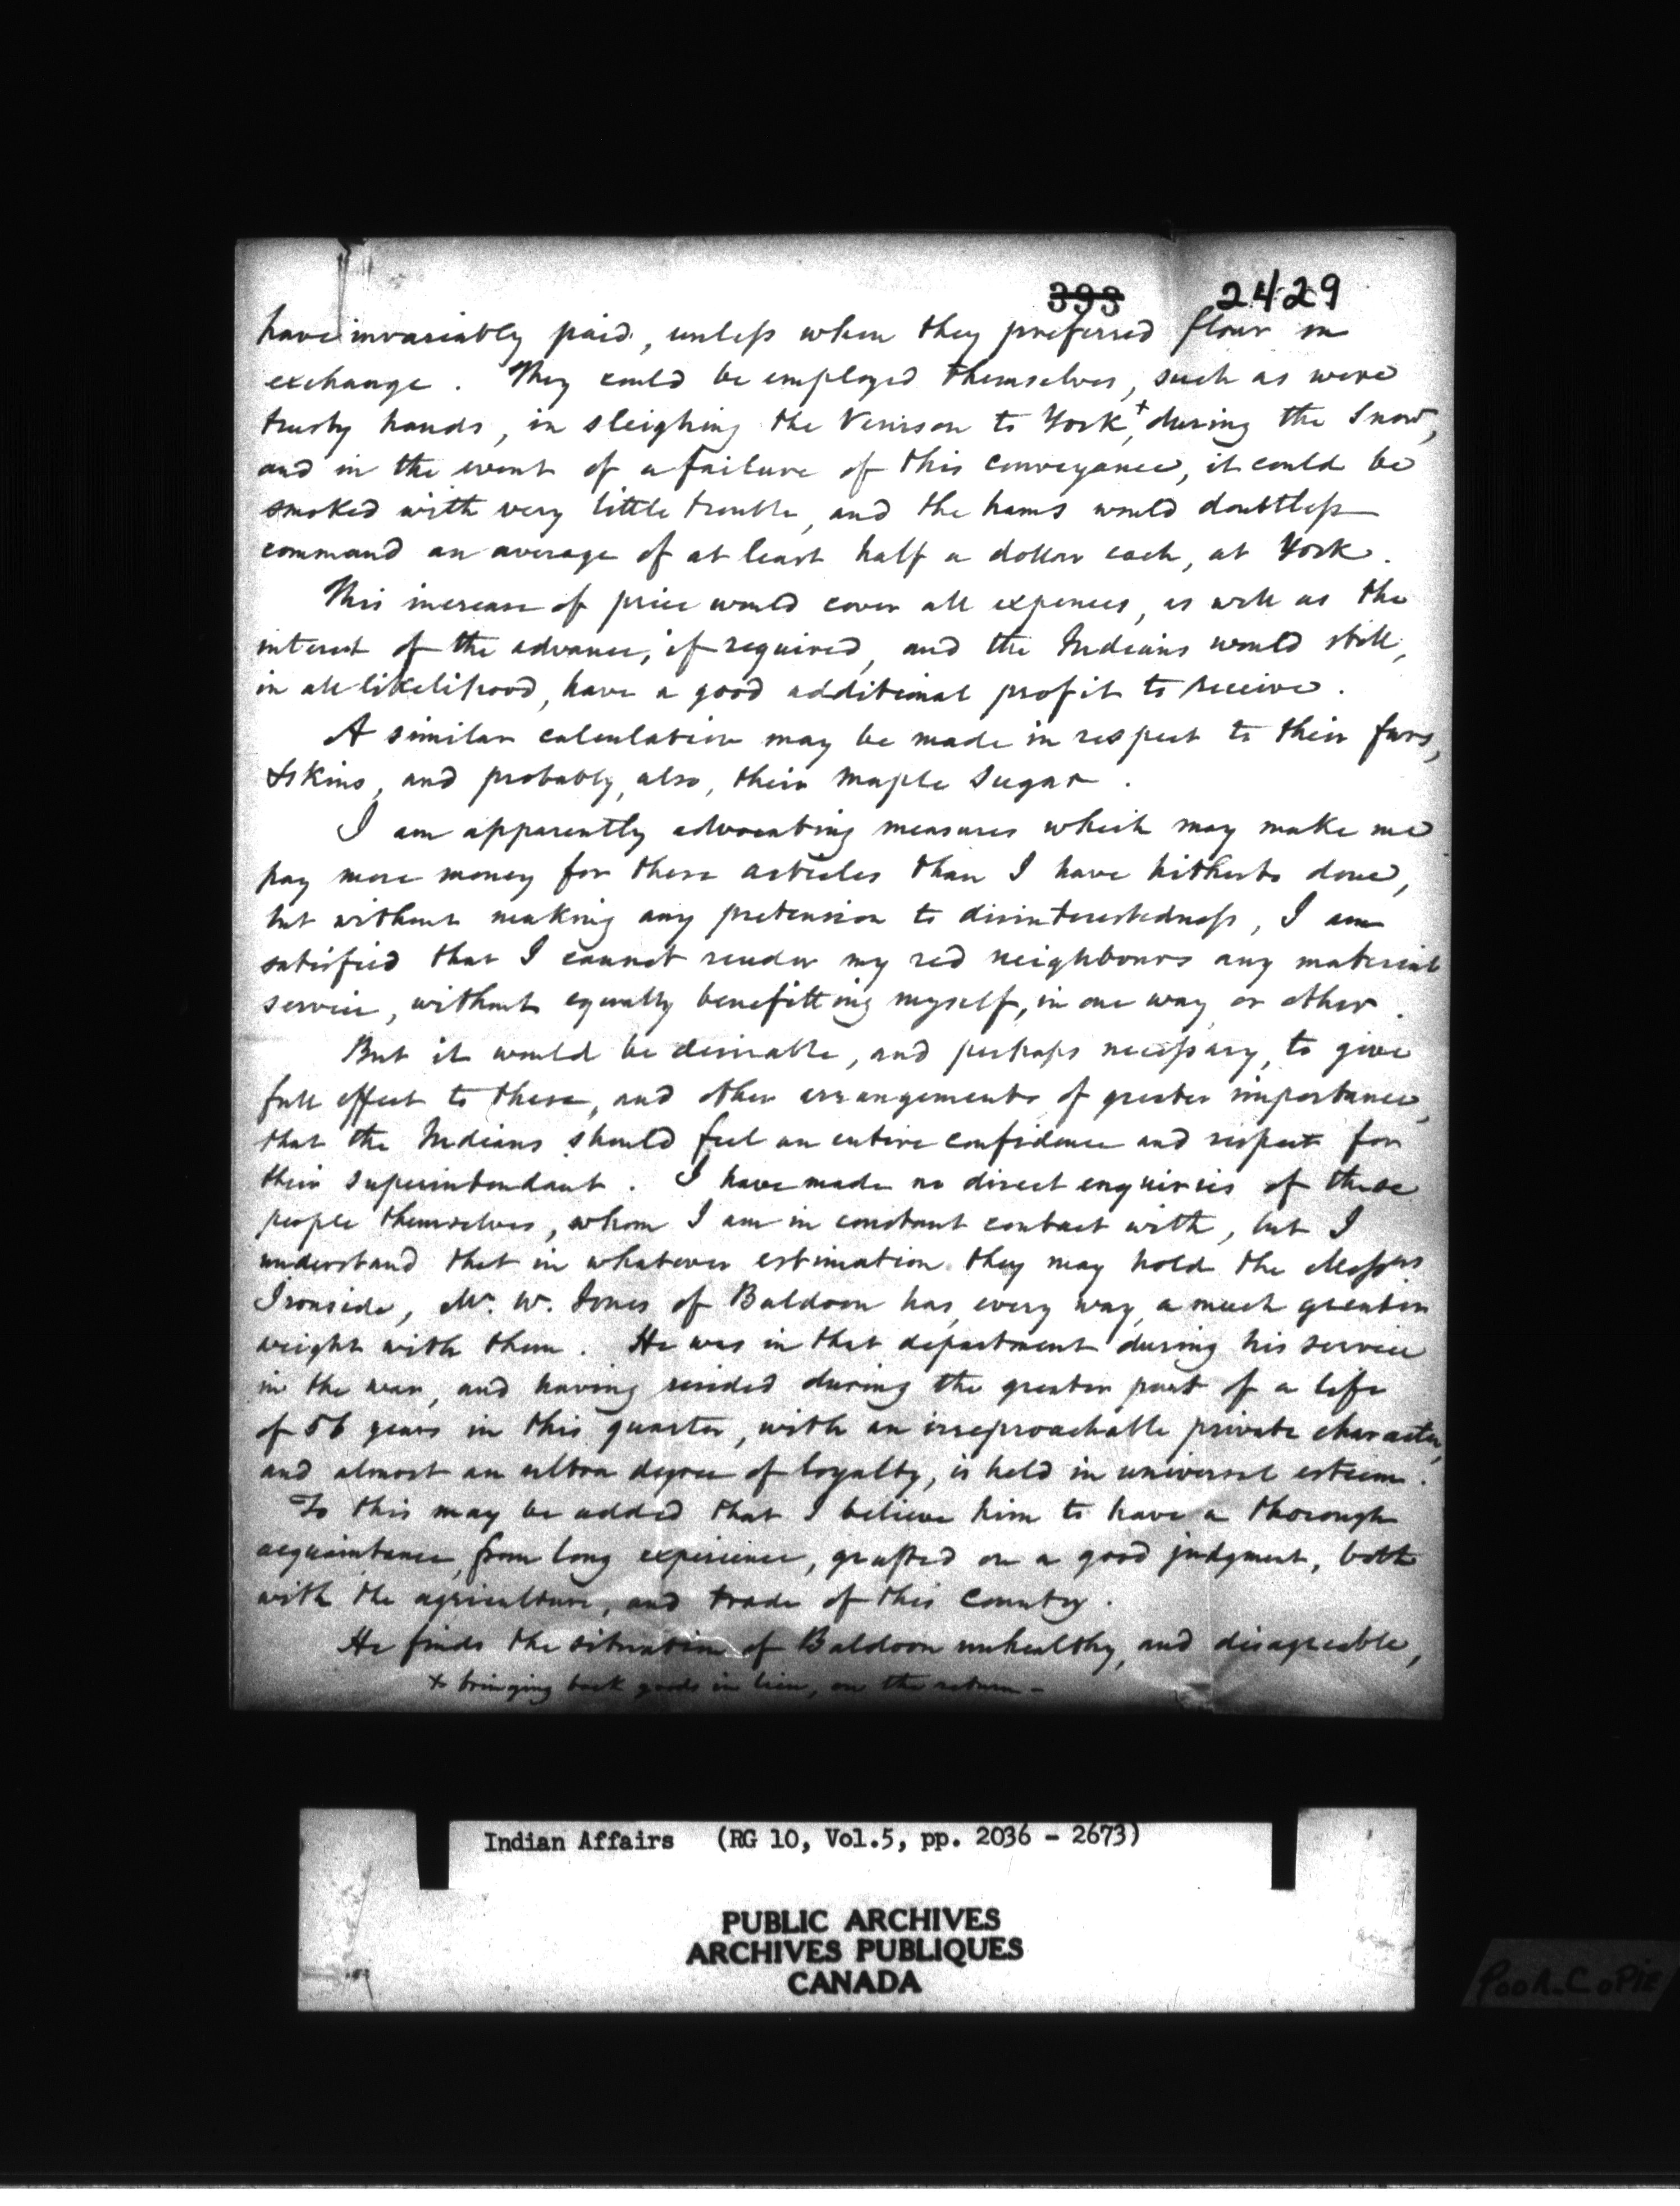 393 2429
have invariably paid, unless when they preferred flour in
exchange. They could be employed themselves, such as were
trusty hands, in sleighing the Venison to York,+ during the Snow,
and in the event of a failure of this conveyance, it could be
smoked with very little trouble, and the hams would doubtless
command an average of at least half a dollar each, at York.
This increase of price would cover all expences, as well as the
interest of the advance, if required, and the Indians would still,
in all likelihood, have a good additional profit to receive.
A similar calculation may be made in respect to their furs,
& skins, and probably, also, their maple sugar.
I am apparently advocating measures which may make me
pay more money for these articles than I have hitherto done,
but without making any pretension to disinterestedness, I am
satisfied that I cannot render my red neighbours any material
service, without equally benefitting myself, in one way or other.
But it would be desirable, and perhaps necessary, to give
full effect to these, and other arrangements of greater importance,
that the Indians should feel an entire confidence and respect for
their superintendant. I have made no direct enquiries of these
people themselves, whom I am in constant contact with, but I
understand that in whatever estimation they may hold the Messrs
Ironside, Mr. W. Jones of Baldoon has, every way, a much greater
weight with them. He was in that department during his service
in the war, and having resided during the greater part of a life
of 56 years in this quarter, with an irreproachable private character,
and almost an ultra degree of loyalty, is held in universal esteem.
To this may be added that I believe him to have a thorough
acquaintance, from long experience, grafted on a good judgment, both
with the agriculture, and trade of this Country.
He finds the situation of Baldoon unhealthy, and disagreeable,
+ bringing back goods in lieu, on the return -
Indian Affairs (RG 10, Vol.5, pp. 2036 - 2673)
PUBLIC ARCHIVES
ARCHIVES PUBLIQUES
CANADA
POOR COPIE